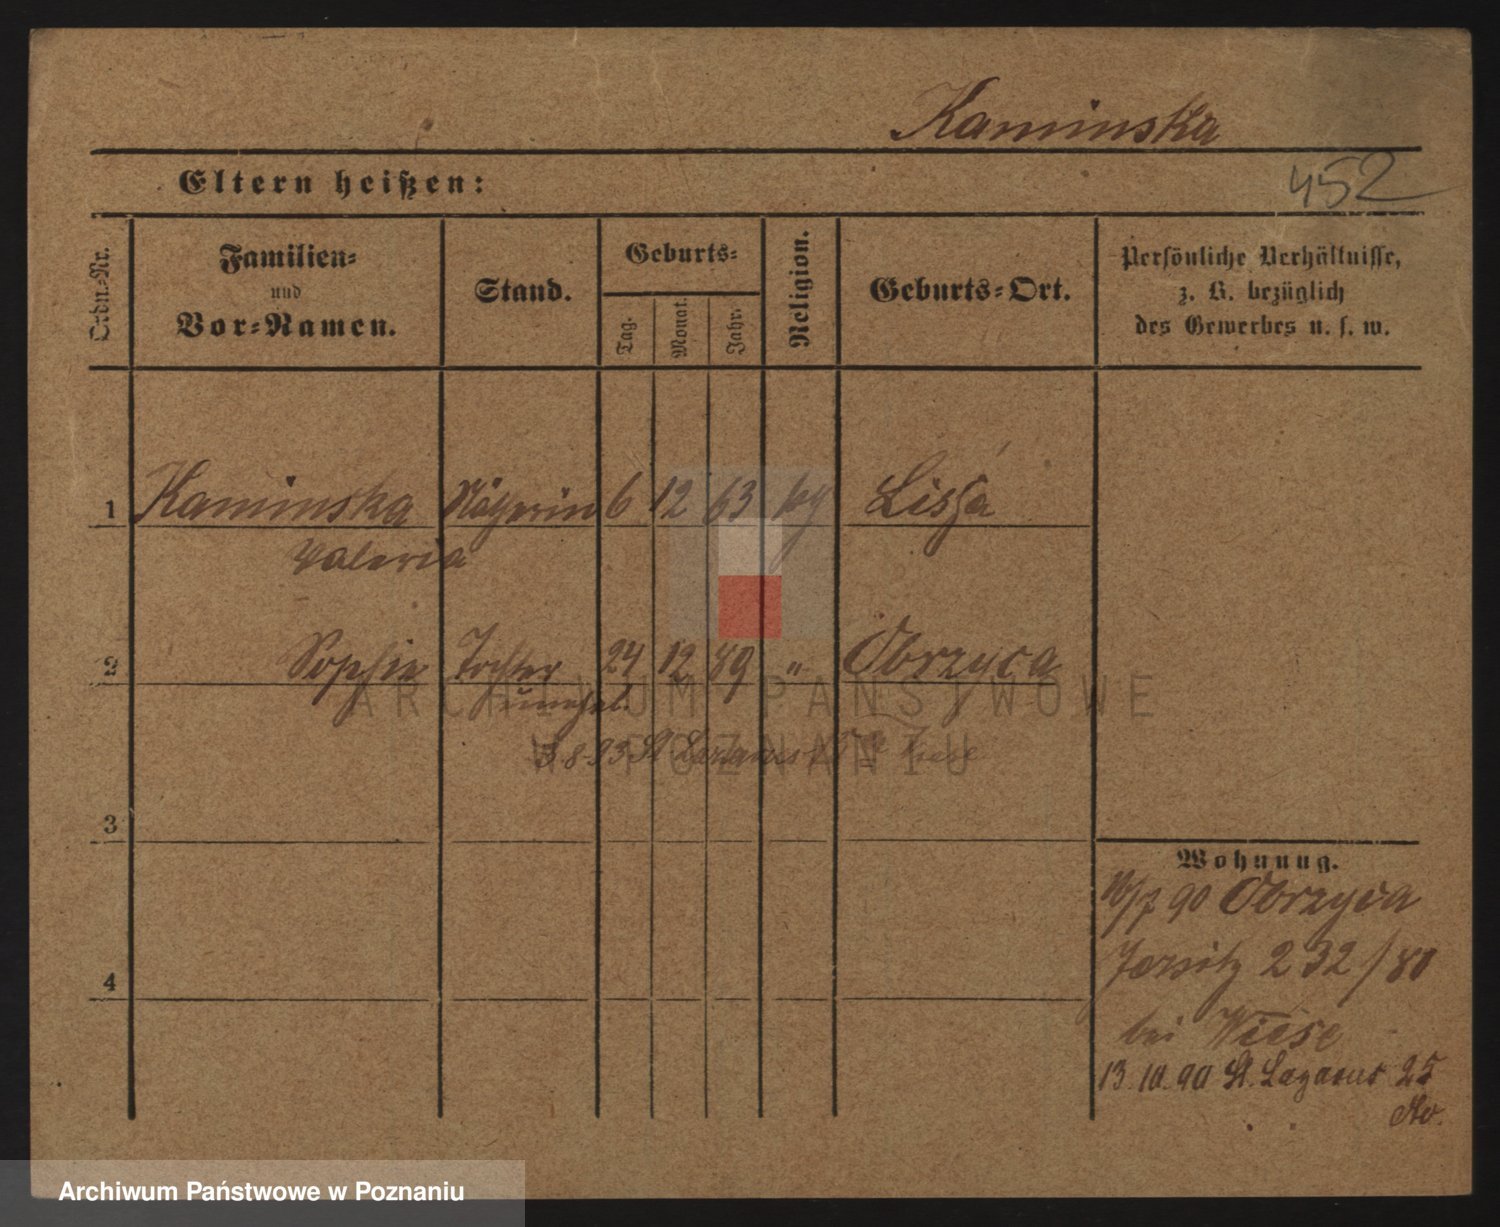 Kaminska
Eltern heißen:
452
Ordn.-Nr.
Familien-
und
Vor-Namen.
Stand.
Geburts-
Tag.
Monat.
Jahr.
Religion.
Geburts-Ort.
Persönliche Verhältnisse,
z. B. bezüglich
des Gewerbes u. s. w.
1 Kaminska Näherin 6 12 63 Lissa
Valeria
2 Sophie Tochter 24 12 89 " Obrzyca
unehel.
3.8.93 St. Lazarus
3
Wohnung.
16/7 90 Obrzyca
Jersitz 232/80
bei Wiese
4
13.10.90 St. Lazarus 25
ARCHIWUM PAŃSTWOWE
W POZNANIU
Archiwum Państwowe w Poznaniu